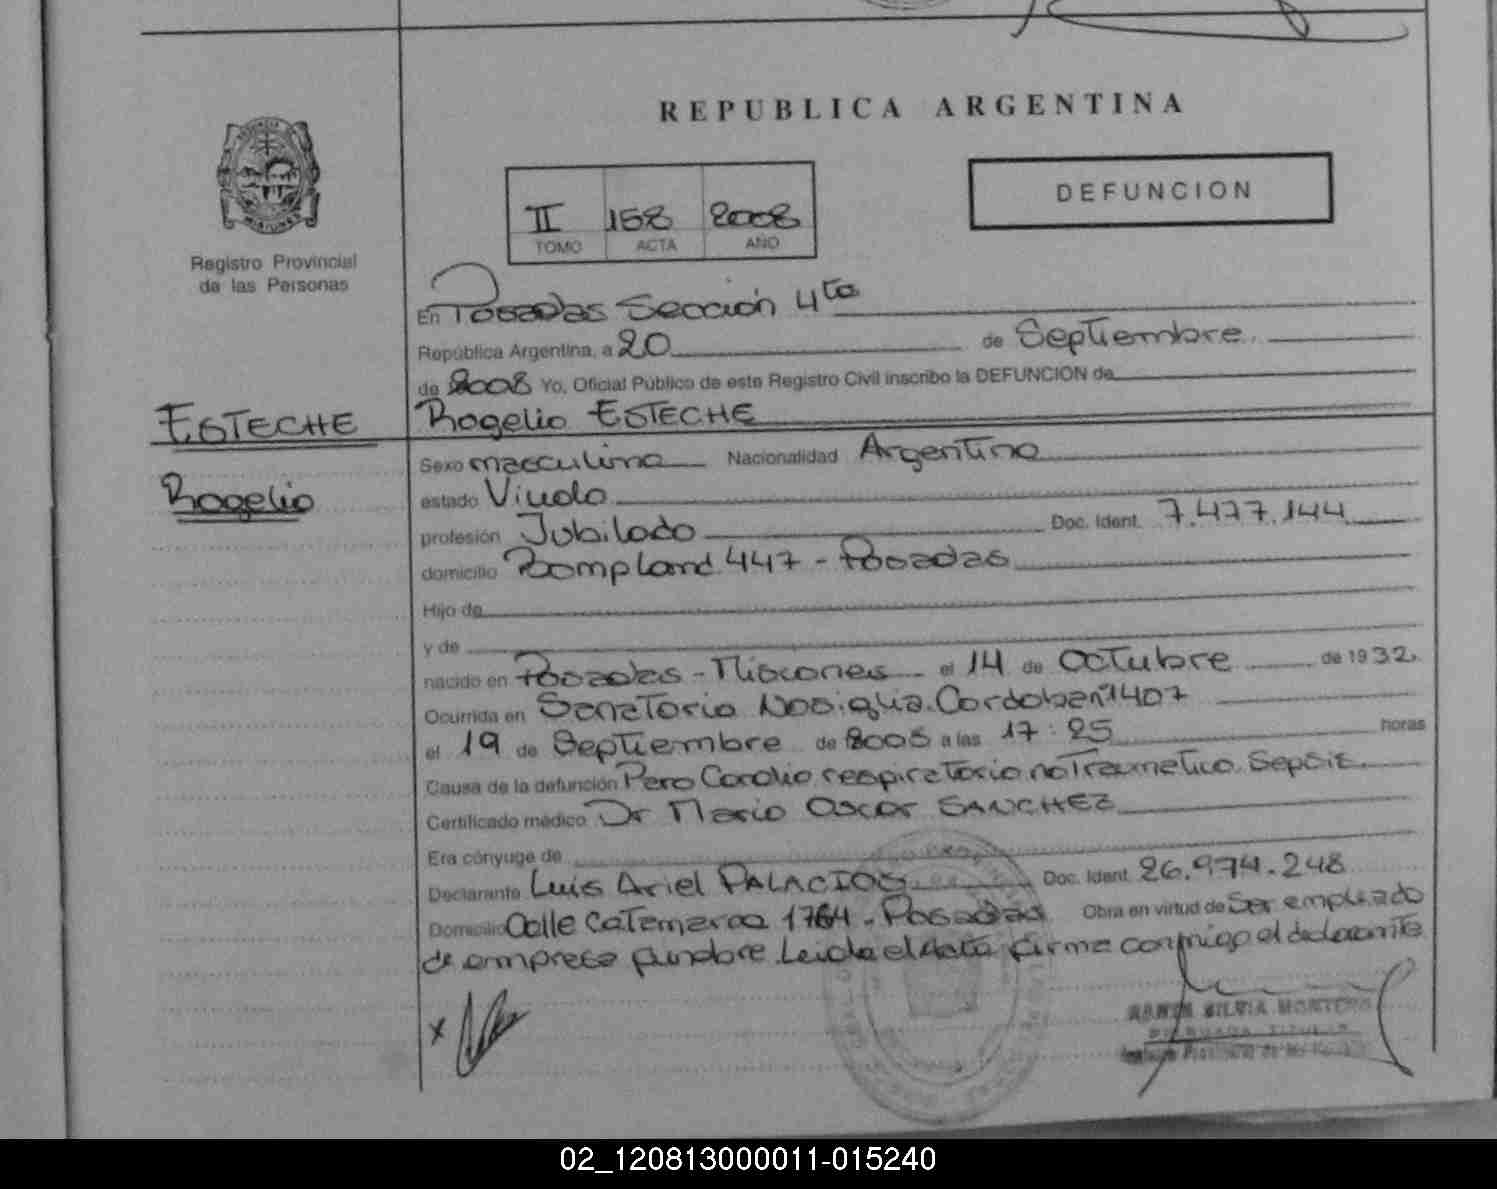 REPUBLICA ARGENTINA
DEFUNCION
II 158 2008
TOMO ACTA AÑO
Registro Provincial
de las Personas
En Posadas Sección 4ta
República Argentina, a 20 de Septiembre
de 2008 Yo, Oficial Público de este Registro Civil inscribo la DEFUNCION de
ESTECHE
Rogelio ESTECHE
Sexo masculino Nacionalidad Argentino
Rogelio
estado Viudo
profesión Jubilado Doc. Ident. 7.477.144
domicilio Bompland 447 - Posadas
Hijo de
y de
nacido en Posadas - Misiones el 14 de Octubre de 1932
Ocurrida en Sanatorio Nosiglia. Cordoba nº 1407
el 19 de Septiembre de 2008 a las 17:25 horas
Causa de la defunción Paro Cardio respiratorio no Traumatico. Sepsis
Certificado médico Dr Mario Oscar SANCHEZ
Era cónyuge de
Declarante Luis Ariel PALACIOS Doc. Ident. 26.974.248
Domicilio Calle Catamarca 1764 - Posadas Obra en virtud de Ser empleado
de empresa funebre Leida el Acta firma conmigo el declarante
x
SILVIA MONTERO
02_120813000011-015240